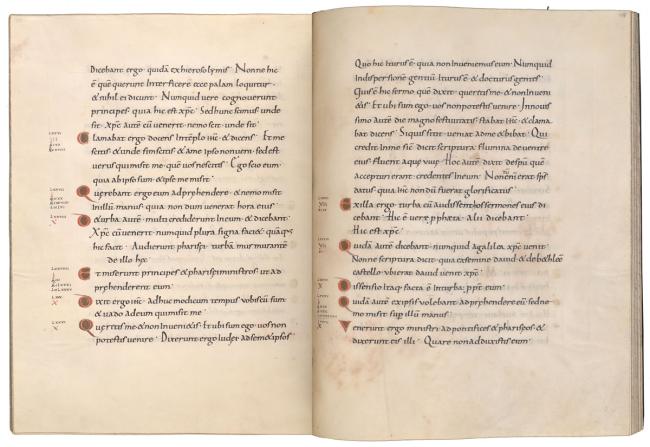 Dicebant ergo quidā ex hierosolymis · Nonne hic
ē quē querunt Interficere ecce palam loquitur
& nihil ei dicunt · Numquid vere cognouerunt
principes quia hic est xp̄c · Sed hunc scimus unde
sit · xp̄c autē cū uenerit nemo scit unde sit
Clamabat ergo docens Intēplo ihc̄ & dicens · Et me
scitis & unde sim scitis & a me ipso non ueni · sed est
uerus qui misit me quē uos nescitis · Ego scio eum
quia ab ipso sum & ipse me misit
Querebant ergo eum adprehendere & nemo misit
In illū manus quia non dum uenerat hora eius
&urba autē multi crediderunt In eum & dicebant
Xp̄c cū uenerit numquid plura signa faci& quā quę
hic facit · Audierunt pharisęi turbā murmurantē
de illo hęc
Et miserunt principes & pharisęi ministros ut ad
prehenderent eum
Dixit ergo ihc̄ adhuc modicum tempus uobiscū sum
& uado ad eum qui misit me
Queritis me & non Inueni&is · & ubi sum ego uos non
potestis uenire · Dixerunt ergo Iudęi ad sem&ipsos
Quo hic Iturus ē quia non Inueniemus eum · Numquid
Indispersionē gentiū Iturus ē & docturus gentes
Quis ē hic sermo quē dixit queritis me & non Inueni
&is · Et ubi sum ego uos non potestis uenire · Innouis
simo autē die magno festiuitatis stabat ihc̄ & clama
bat dicens · Si quis sitit ueniat ad me & bibat · Qui
credit In me sicut dicit scriptura flumina de uentre
eius fluent aquę uiuę · Hoc autē dixit despū quē
accepturi erant credentes In eum · Nondū erat sp̄s
datus quia ihc̄ non dū fuerat glorificatus
Ex illa ergo turba cū audissent hos sermones eius di
cebant · Hic ē uere ppheta · Alii dicebant
Hic est xp̄c
Quidā autē dicebant numquid a galilea xp̄c uenit
Nonne scriptura dicit quia ex semine dauid & de bethleē
castello ubi erat dauid uenit xp̄c
Dissensio Itaq; facta ē Inturba ppt̄ eum
Quidā autē ex ipsis uolebant adprehendere eū sed ne
mo misit sup illū manus
Venerunt ergo ministri ad pontifices & pharisęos &
dixerunt eis illi · Quare non adduxistis eum